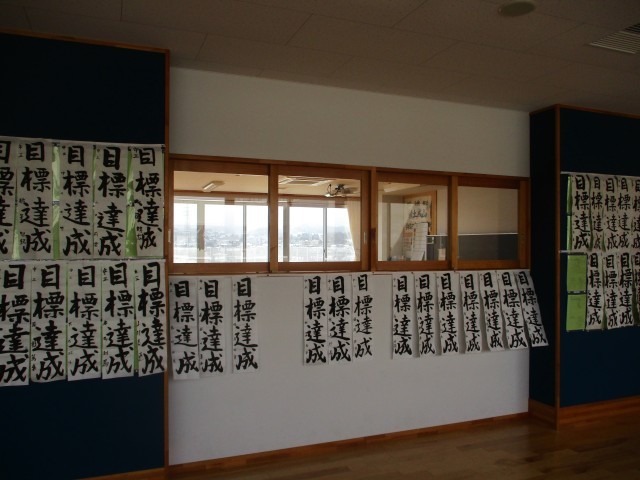 目標達成
目標達成
目標達成
目標達成
目標達成
目標達成
目標達成
目標達成
目標達成
目標達成
目標達成
目標達成
目標達成
目標達成
目標達成
目標達成
目標達成
目標達成
目標達成
目標達成
目標達成
目標達成
目標達成
目標達成
目標達成
目標達成
目標達成
目標達成
目標達成
目標達成